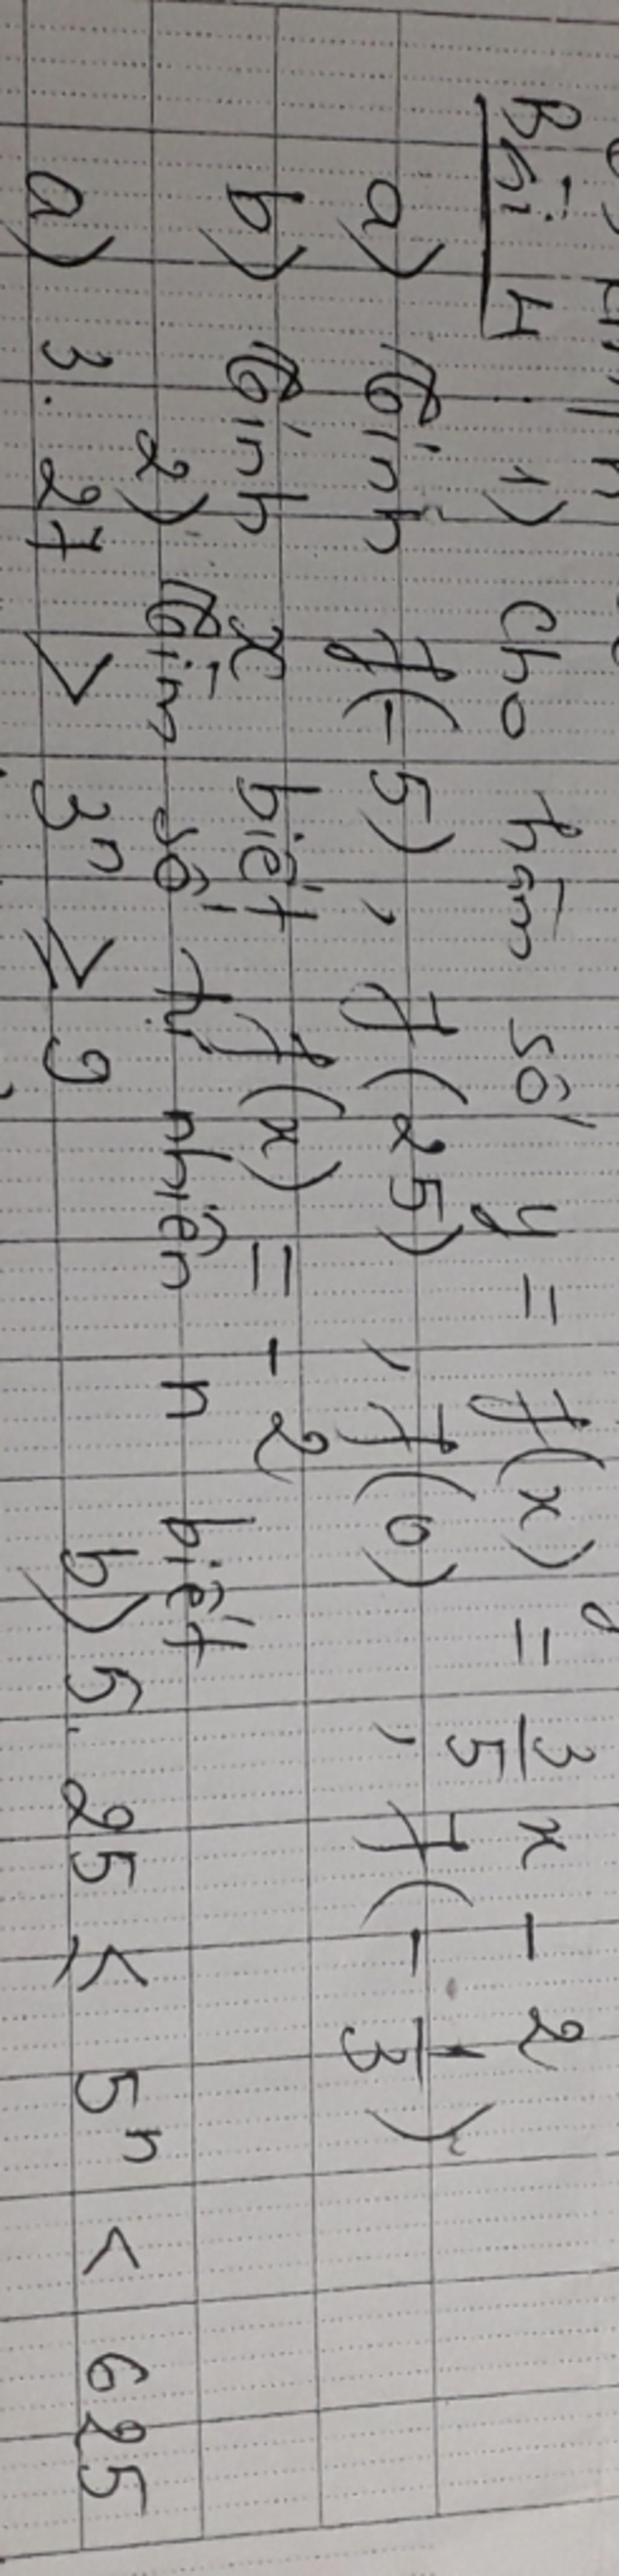 Bài 4: 1) Cho hàm số y = f(x) = 3/5 x - 2
a) Tính f(-5), f(25), f(0), f(-1/3)
b) Tính x biết f(x) = -2
2) Tìm số tự nhiên n biết
a) 3. 27 > 3ⁿ ≥ 9 b) 5. 25 ≤ 5ⁿ < 625